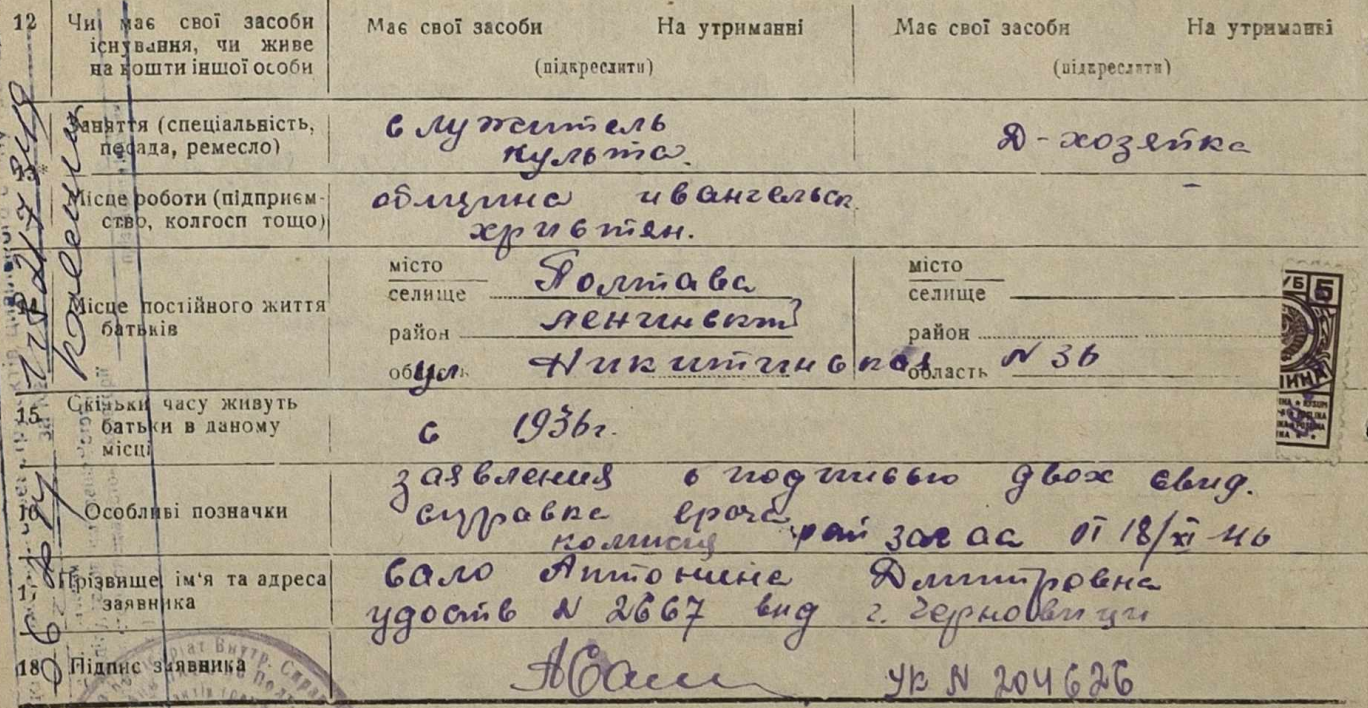 12 Чи має свої засоби існування, чи живе на кошти іншої особи
Має свої засоби На утриманні
(підкреслити)
Має свої засоби На утриманні
(підкреслити)
13 Заняття (спеціальність, посада, ремесло)
служитель
культа.
Д-хозяйка
Місце роботи (підприємство, колгосп тощо)
община ивангельск.
християн.
-
14 Місце постійного життя батьків
місто
селище Полтава
район Ленинский
область ул. Никитинская N 36
місто
селище
район
область
15 Скільки часу живуть батьки в даному місці
с 1936 г.
16 Особливі позначки
заявления с подписью двох свид.
справка врача
комисия рай загса от 18/XI 46
17 Прізвище, ім'я та адреса заявника
Сало Антонина Дмитровна
удоств N 2667 вид г. Черновици
18 Підпис заявника
УК N 204626
5